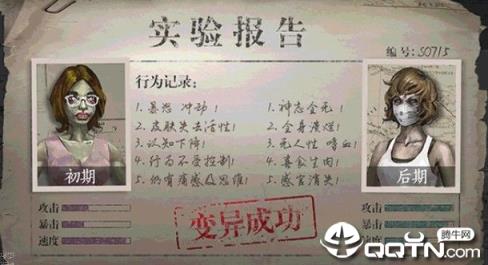 实验报告
编号:S0715
行为记录:
1.暴怒 冲动!
2.皮肤失去活性!
3.认知下降!
4.行为不受控制!
5.仍有痛感及思维!
1.神志全无!
2.全身溃烂!
3.无人性 嗜血!
4.喜食生肉!
5.感官消失!
初期
后期
攻击
暴击
速度
攻击
暴击
速度
变异成功
腾牛网
QQTN.com